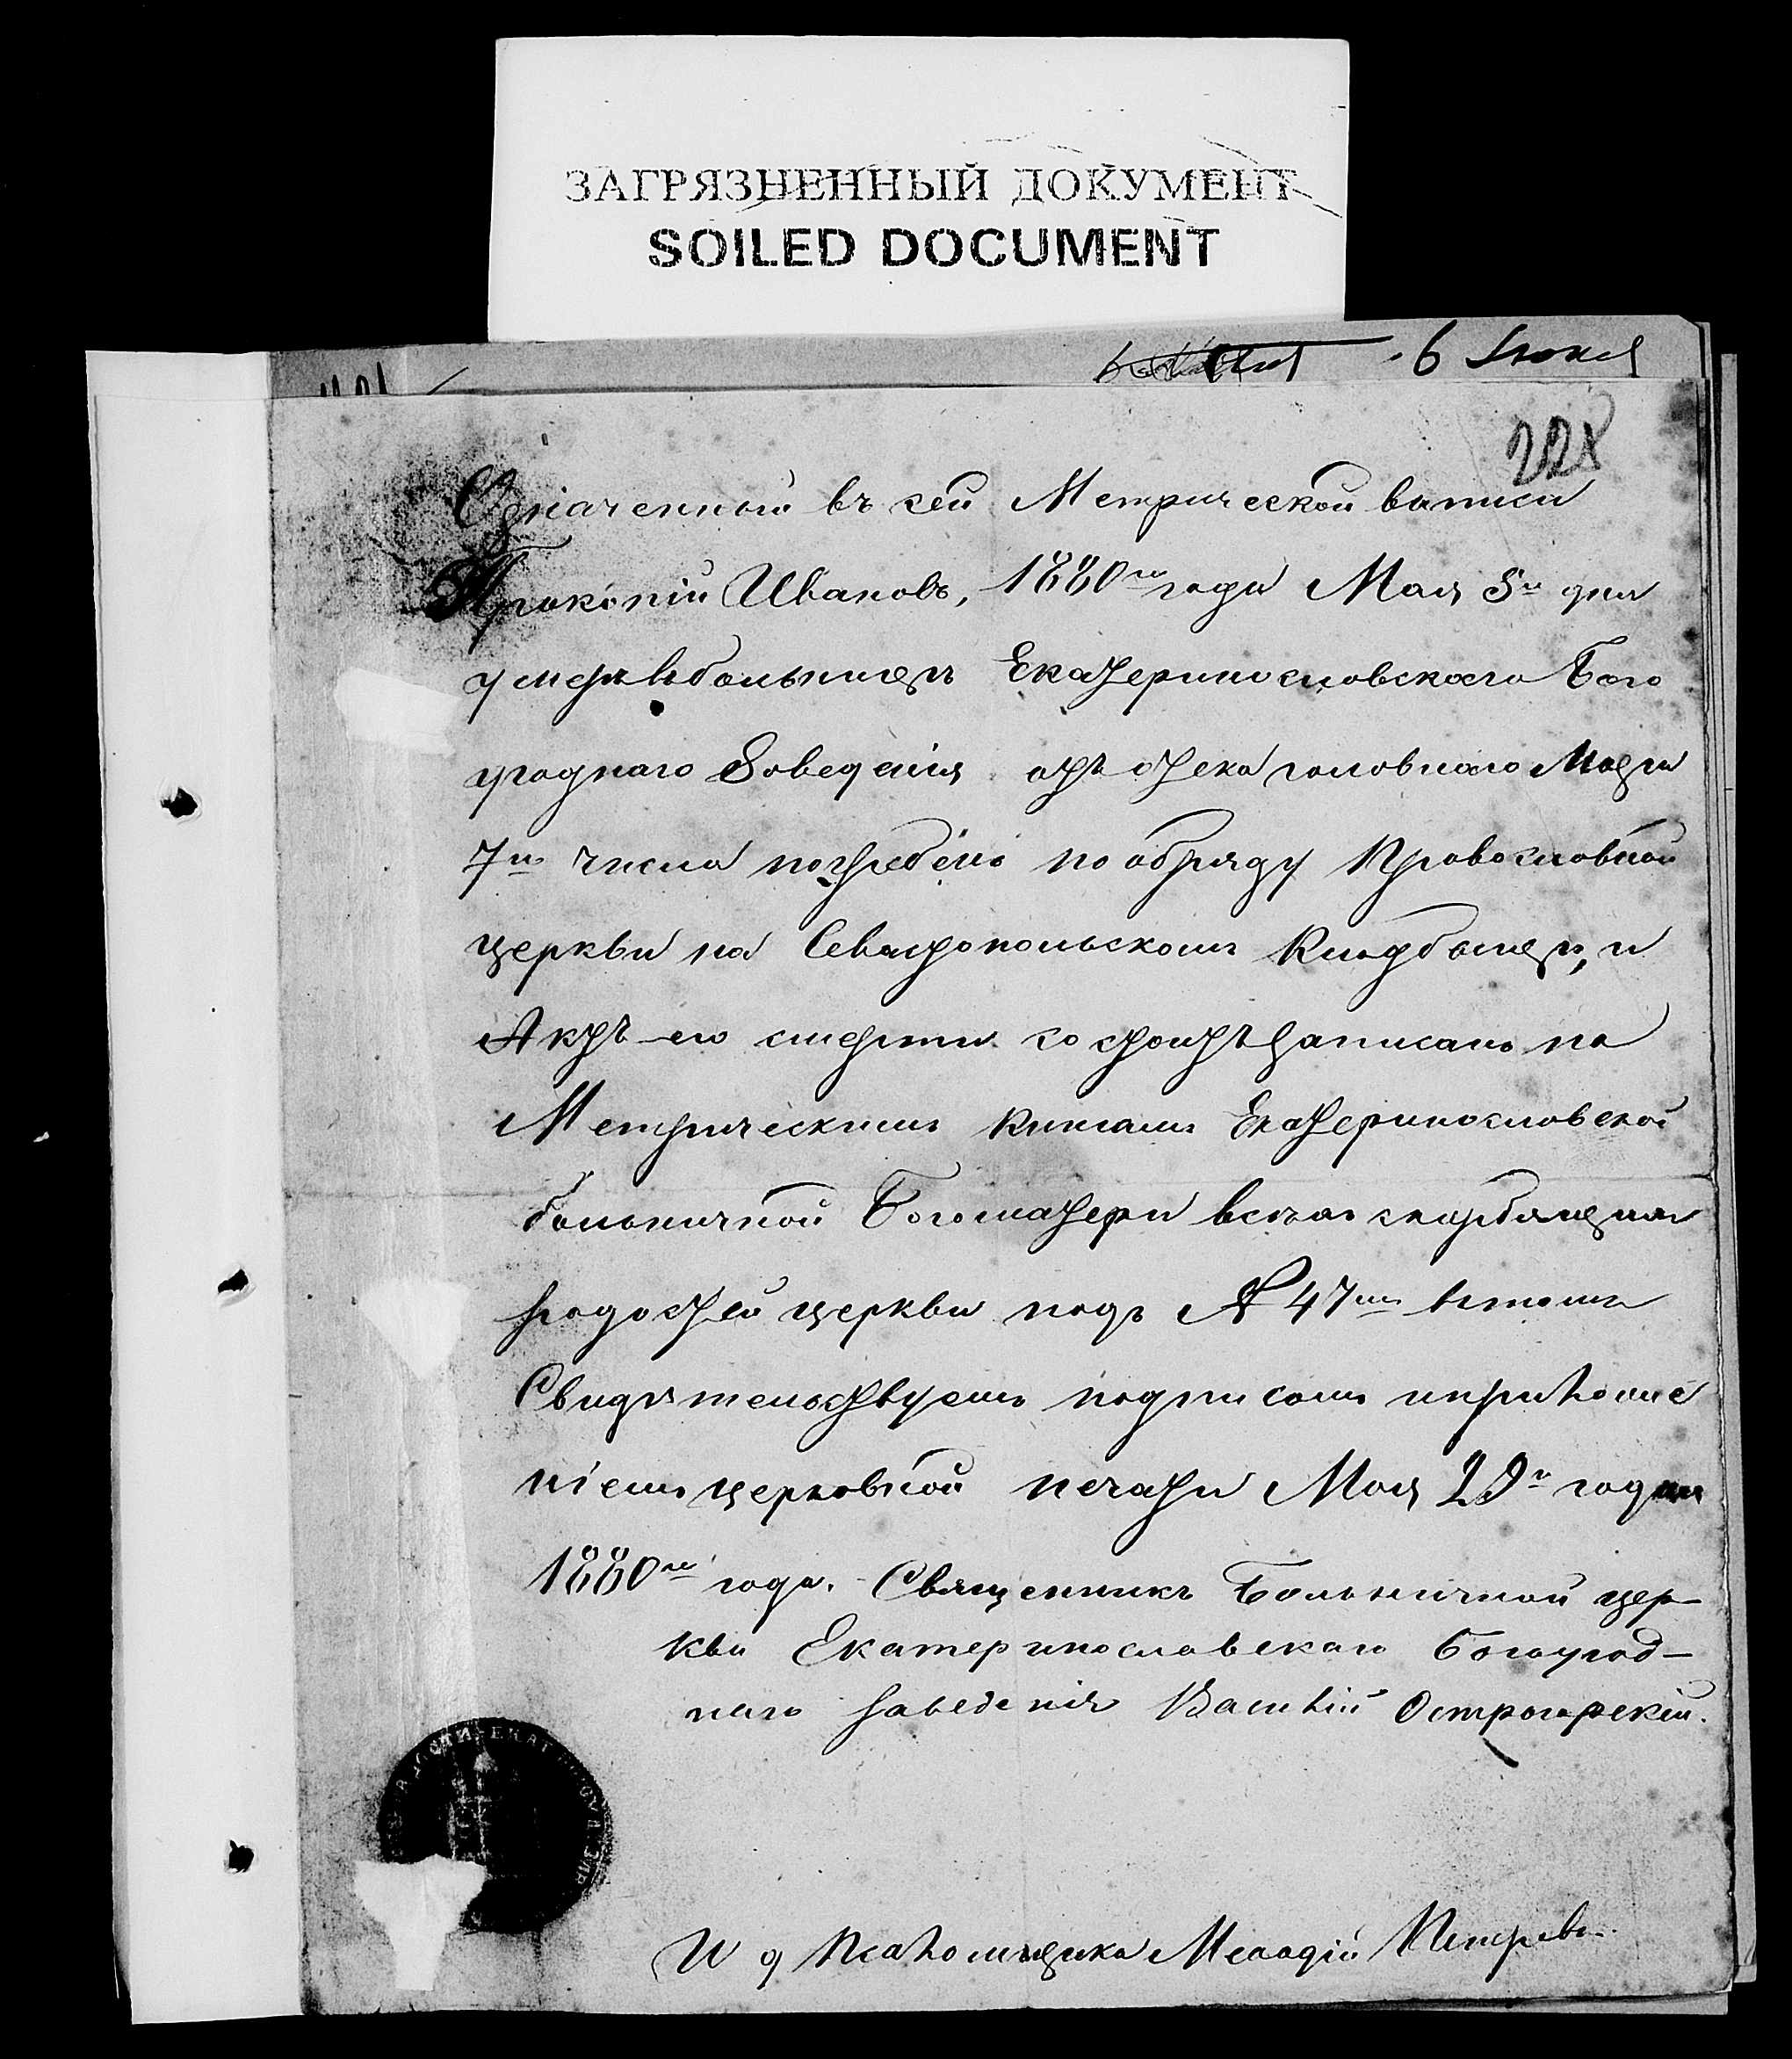 ЗАГРЯЗНЕННЫЙ ДОКУМЕНТ
SOILED DOCUMENT
6 Июня
228
Означенный въ сей Метрической выписи
Прокопій Ивановъ, 1880го года Мая 5го дня
умеръ въ больницѣ Екатеринославскаго Бого
угоднаго Заведенія отъ отека головнаго Мозга
7го числа погребенъ по обряду Православной
церкви на Севастопольскомъ Кладбищѣ, и
Актъ его смерти состоитъ записанъ по
Метрическимъ Книгамъ Екатеринославской
больничной Богоматери всѣхъ скорбящихъ
радостей церкви подъ № 47мъ въ томъ
Свидѣтельствуемъ подписомъ и приложе
ніемъ церковной печати Мая 29го
1880го года. Священникъ Больничной цер-
кви Екатеринославскаго Богоугод-
наго Заведенія Василій Острогорскій.
И д Псаломщика Петровъ